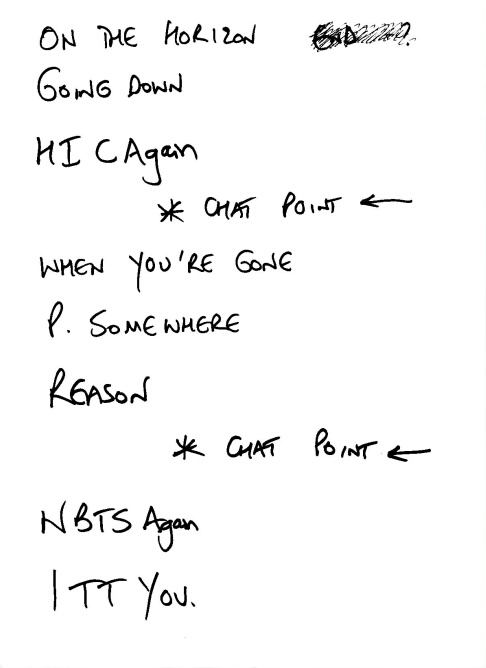 ON THE HORIZON
GOING DOWN
HI C Again
* CHAT POINT ←
WHEN YOU'RE GONE
P. SOMEWHERE
REASON
* CHAT POINT ←
NBTS Again
I TT YOU.